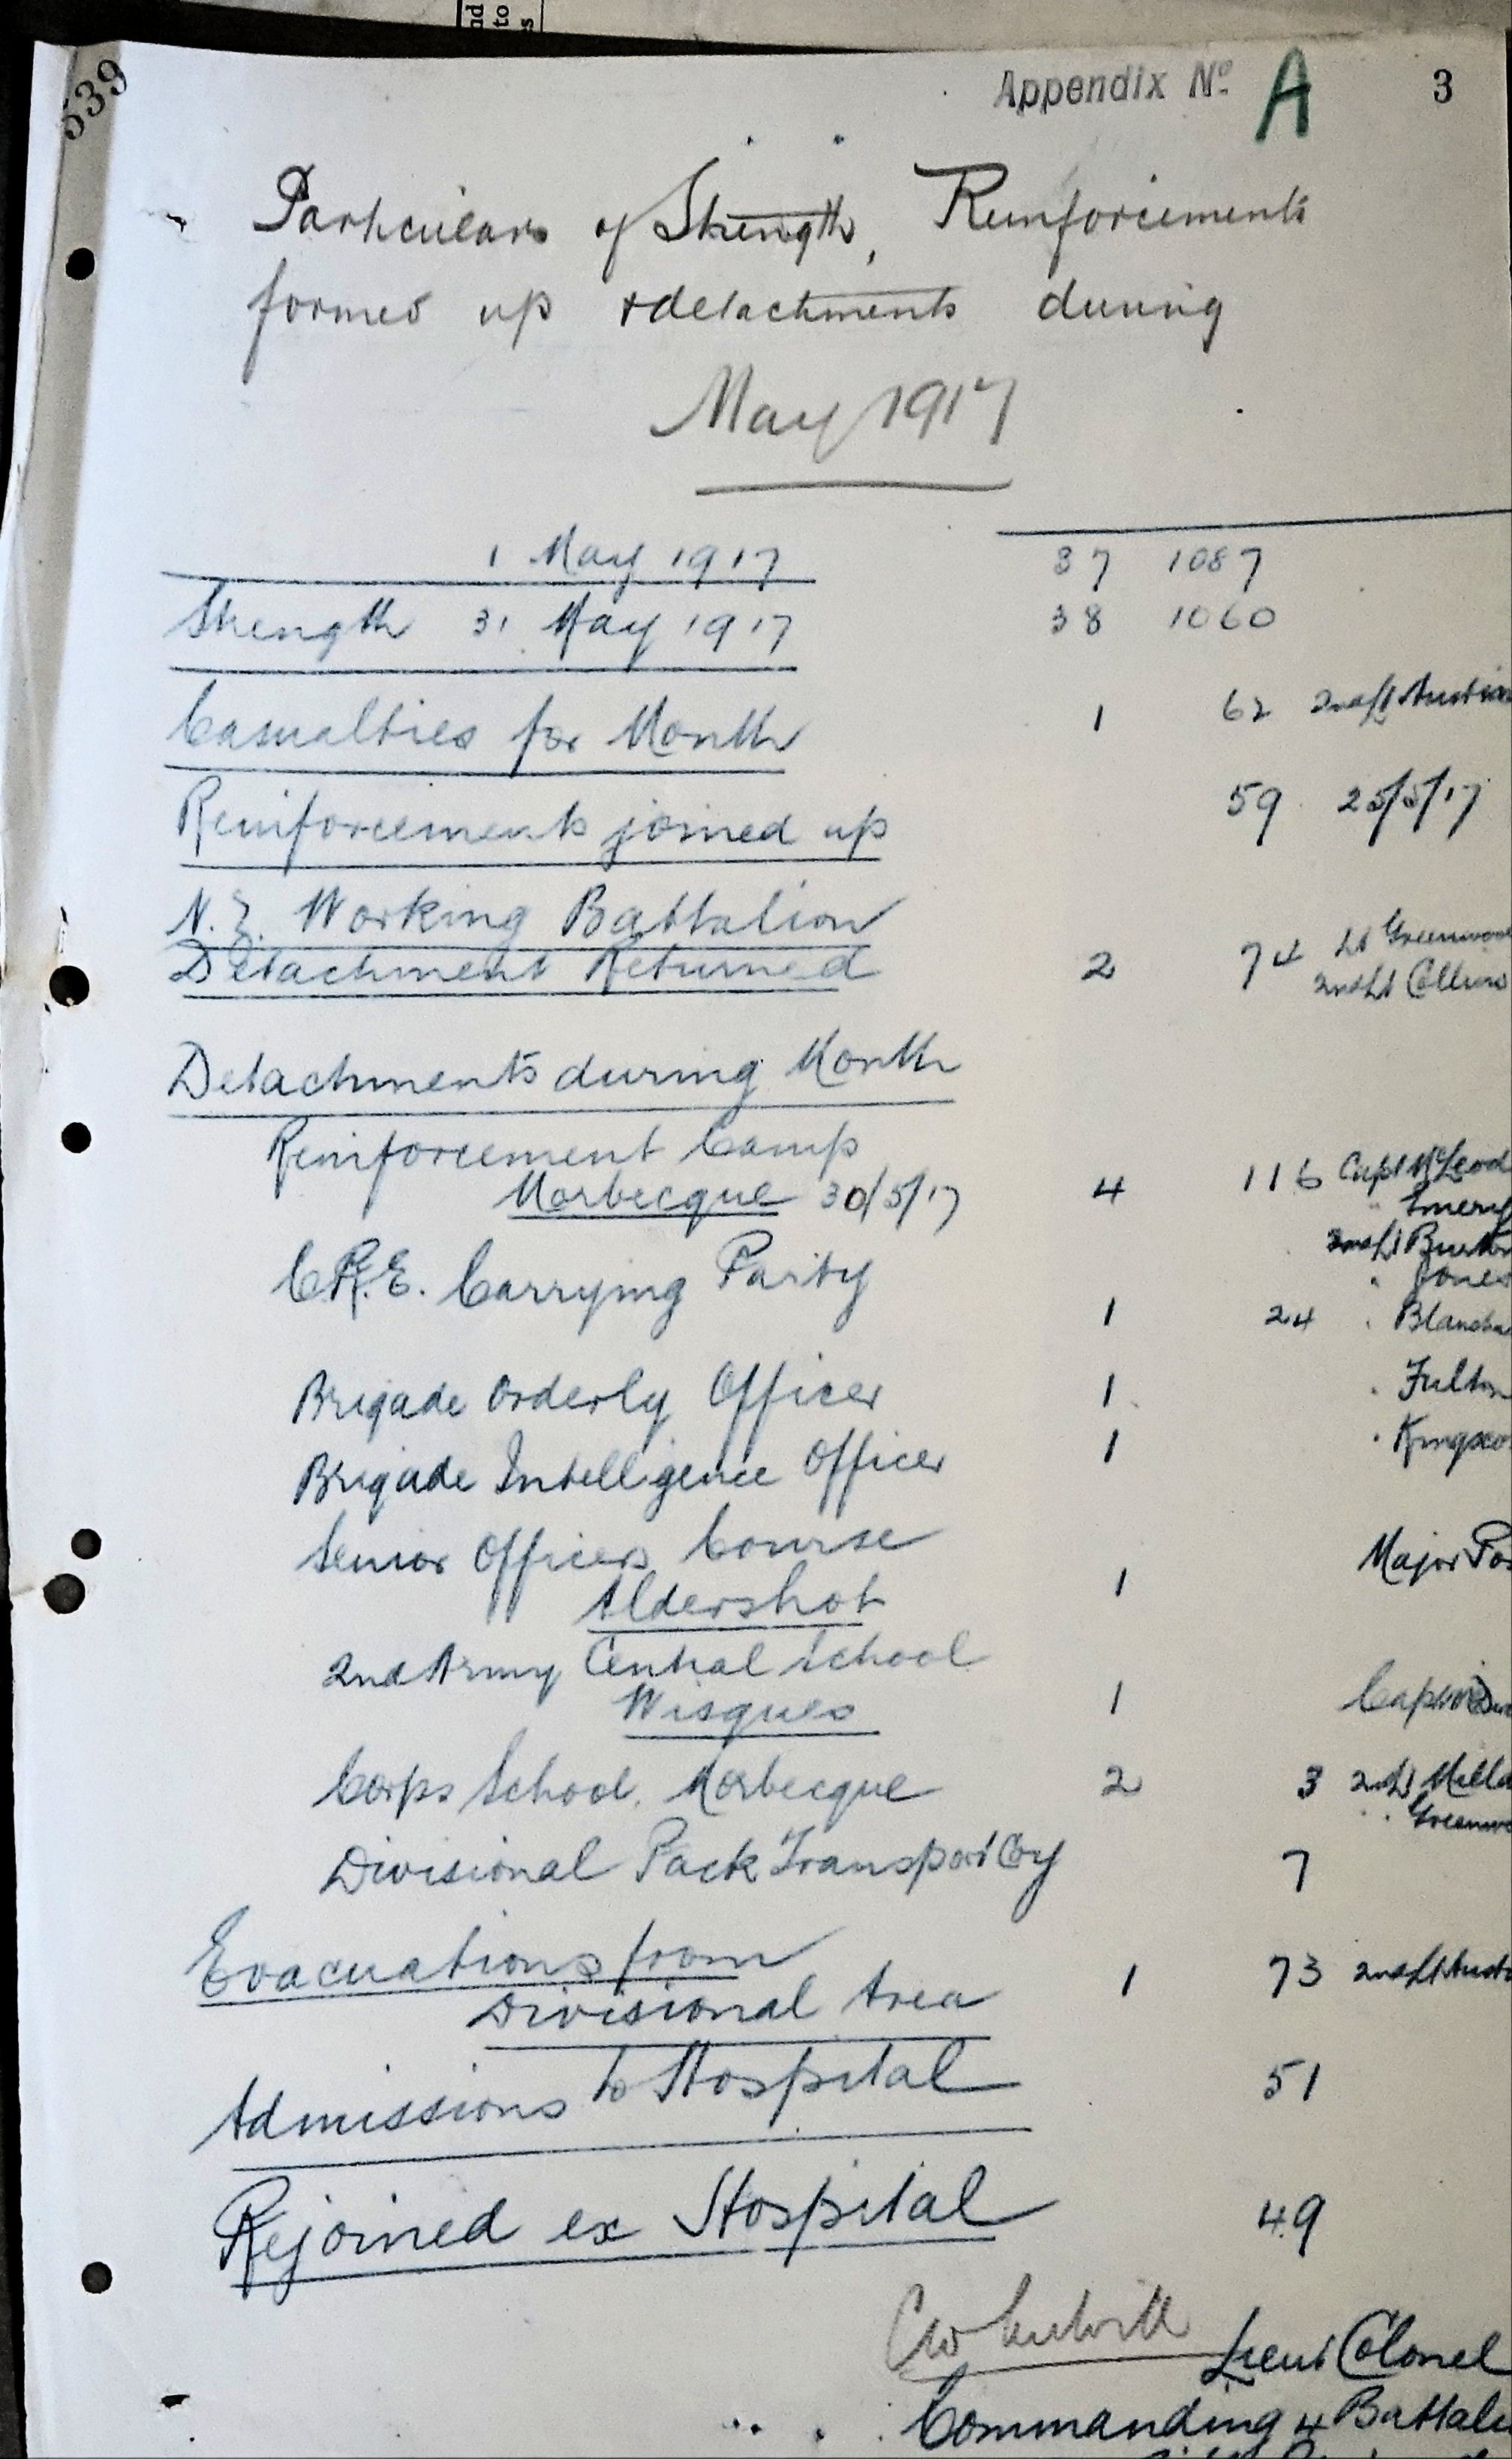 nd
to
s
539
Appendix No. A 3
Particulars of Strength, Reinforcements
formed up & detachments during
May 1917
1 May 1917 37 1087
Strength 31 May 1917 38 1060
Casualties for Month 1 62 2nd Lt Austin
Reinforcements joined up 59 25/5/17
N.Z. Working Battalion
Detachment Returned 2 74 Lt Greenwood
2nd Lt Collins
Detachments during Month
Reinforcement Camp
Morbecque 30/5/17 4 116 Capt McLeod
" Emery
2nd Lt Burton
" Jones
C.R.E. Carrying Party 1 24 "
Brigade Orderly Officer 1 " Fulton
Brigade Intelligence Officer 1 "
Senior Officers Course
Aldershot 1 Major
2nd Army Central School
Wisques 1
Corps School. Morbecque 2 3 2nd Lt
" "
Divisional Pack Transport Coy 7
Evacuations from
Divisional Area 1 73 2nd Lt
Admissions to Hospital 51
Rejoined ex Hospital 49
Lieut Colonel
Commanding 4